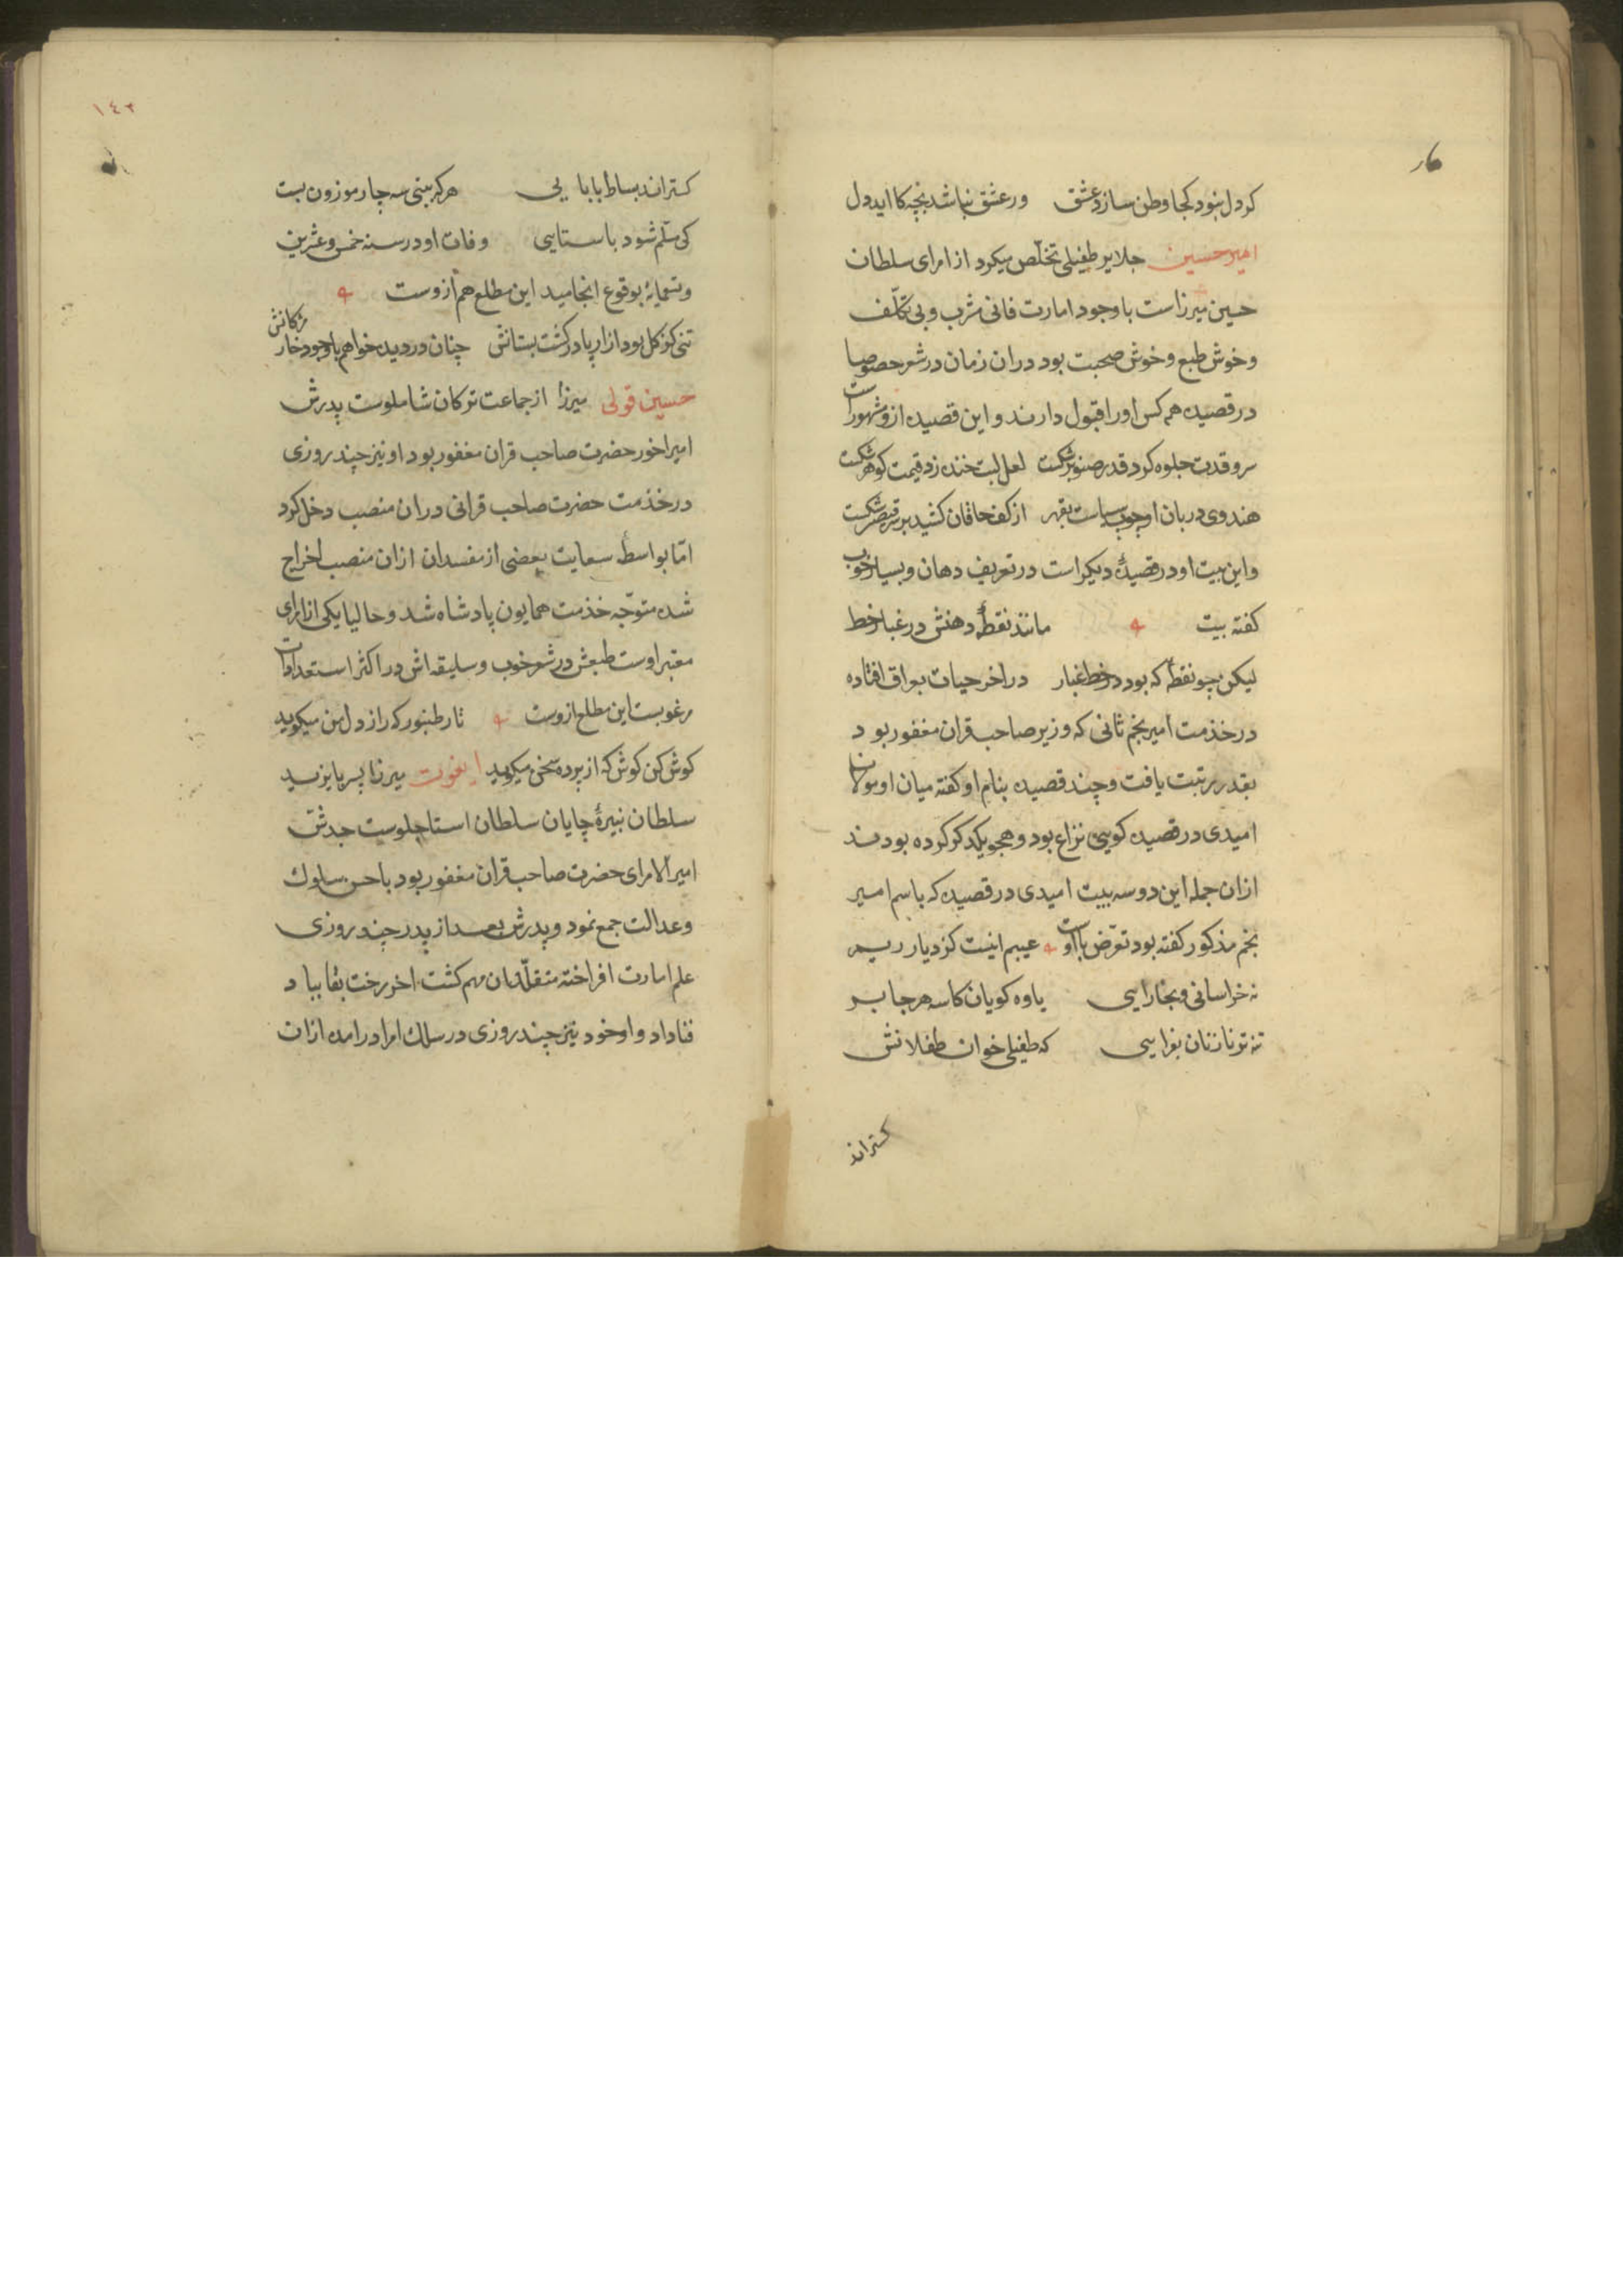 کر دل نبود کجا وطن سازد عشق ور عشق نباشد بچه کار اید دل
امیر حسین جلایر طفیلی تخلّص میکرد از امرای سلطان
حسین میرزاست با وجود امارت فانی مشرب و بی تکلّف
و خوش طبع و خوش صحبت بود در ان زمان در شعر خصوصا
در قصیده همه کس او را قبول دارند و این قصیده ازو مشهور است
سرو قدت جلوه کرد قدر صنوبر شکست لعل لبت خنده زد قیمت کوهر شکست
هندوی دربان او چوب سیاست بقهر از کف خاقان کشید بر سر قیصر شکست
و این بیت او در قصیدهٔ دیکر است در تعریف دهان و بسیار خوب
کفته بیت مانند نقطهٔ دهنش در غبار خط
لیکن چو نقطهٔ که بود در خط غبار در اخر حیات بعراق افتاده
در خذمت امیر نجم ثانی که وزیر صاحب قران مغفور بود
بقدر رتبت یافت و چند قصیده بنام او کفته میان او و مولانا
امیدی در قصیده کویی نزاع بود و هجو یکدکر کرده بودند
ازان جمله این دو سه بیت امیدی در قصیده که باسم امیر
نجم مذکور کفته بود تعرّض با اوست عیبم اینست کز دیار ریم
نه خراسانی و بخارایی یاوه کویان کاسه هر جا بر
نه تو نازنان بغرایی که طفیلی خوان طفلانش
کستراند
١٤٢
کستراند بساط بابایی هر که بینی سه چار موزون بست
کی مسلّم شود باستایی وفات او در سنه خمس و عشرین
و تسعمایهٔ بوقوع انجامید این مطلع هم ازوست
تنی کز کل بود ازار پا در کشت بستانش چنان در دیده خواهم با وجود خار مژکانش
حسین قولی میرزا از جماعت ترکان شاملوست پدرش
امیراخور حضرت صاحب قران مغفور بود او نیز چند روزی
در خذمت حضرت صاحب قرانی در ان منصب دخل کرد
امّا بواسطهٔ سعایت بعضی از مفسدان ازان منصب اخراج
شده متوجّه خذمت همایون پادشاه شد و حالیا یکی از امرای
معتبر اوست طبعش در شعر خوب و سلیقه اش در اکثر استعدادات
مرغوبست این مطلع ازوست تار طنبور که راز دل من میکوید
کوش کن کوش که از پرده سخن میکوید ایغوت میرزا پسر بایزید
سلطان نبیرهٔ چایان سلطان استاجلوست جدش
امیر الامرای حضرت صاحب قران مغفور بود با حسن سلوک
و عدالت جمع نمود و پدرش بعد از پدر چند روزی
علم امارت افراخته متقلّد ان مهم کشت اخر رخت بقا بباد
فنا داد و او خود نیز چند روزی در سلک امرا درامده ازان